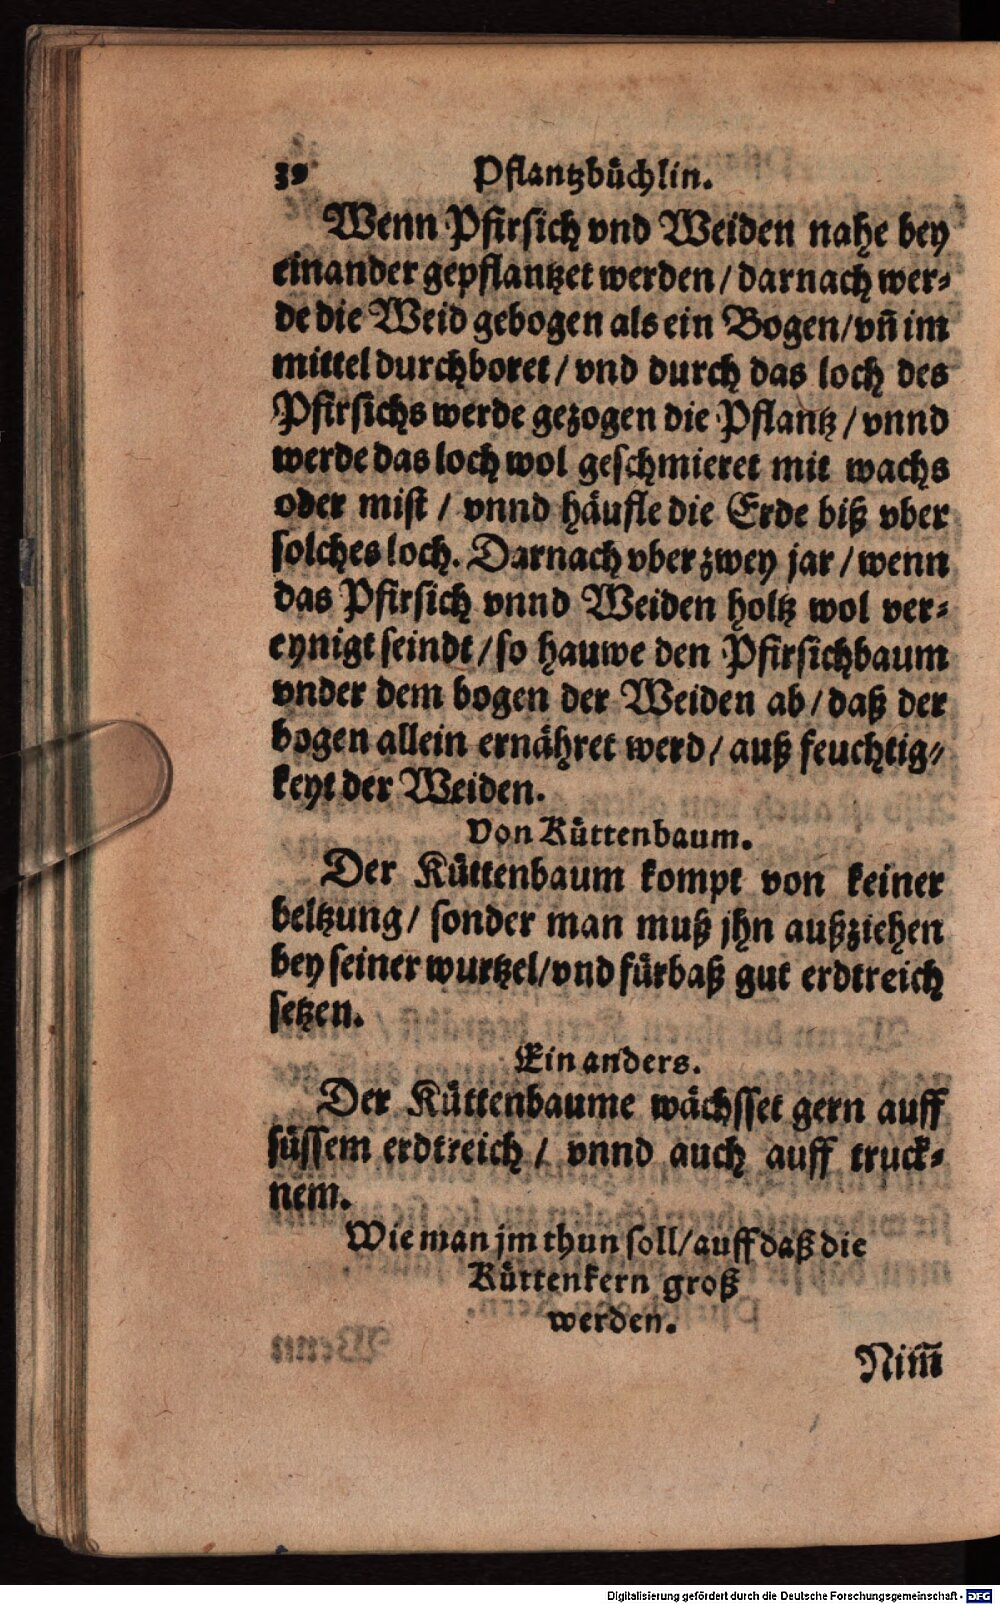 Pflantzbüchlin.
Wenn Pfirsich vnd Weiden nahe bey
einander gepflantzet werden / darnach wer-
de die Weid gebogen als ein Bogen / vñ im
mittel durchboret / vnd durch das loch des
Pfirsichs werde gezogen die Pflantz / vnnd
werde das loch wol geschmieret mit wachs
oder mist / vnnd häufle die Erde biß vber
solches loch. Darnach vber zwey jar / wenn
das Pfirsich vnnd Weiden holtz wol ver-
eynigt seindt / so hauwe den Pfirsichbaum
vnder dem bogen der Weiden ab / daß der
bogen allein ernähret werd / auß feuchtig-
keyt der Weiden.
Von Küttenbaum.
Der Küttenbaum kompt von keiner
beltzung / sonder man muß jhn außziehen
bey seiner wurtzel / vnd fürbaß gut erdtreich
setzen.
Ein anders.
Der Küttenbaume wächsset gern auff
süssem erdtreich / vnnd auch auff truck-
nem.
Wie man jm thun soll / auff daß die
Küttenkern groß
werden.
Nim̃
Digitalisierung gefördert durch die Deutsche Forschungsgemeinschaft - DFG